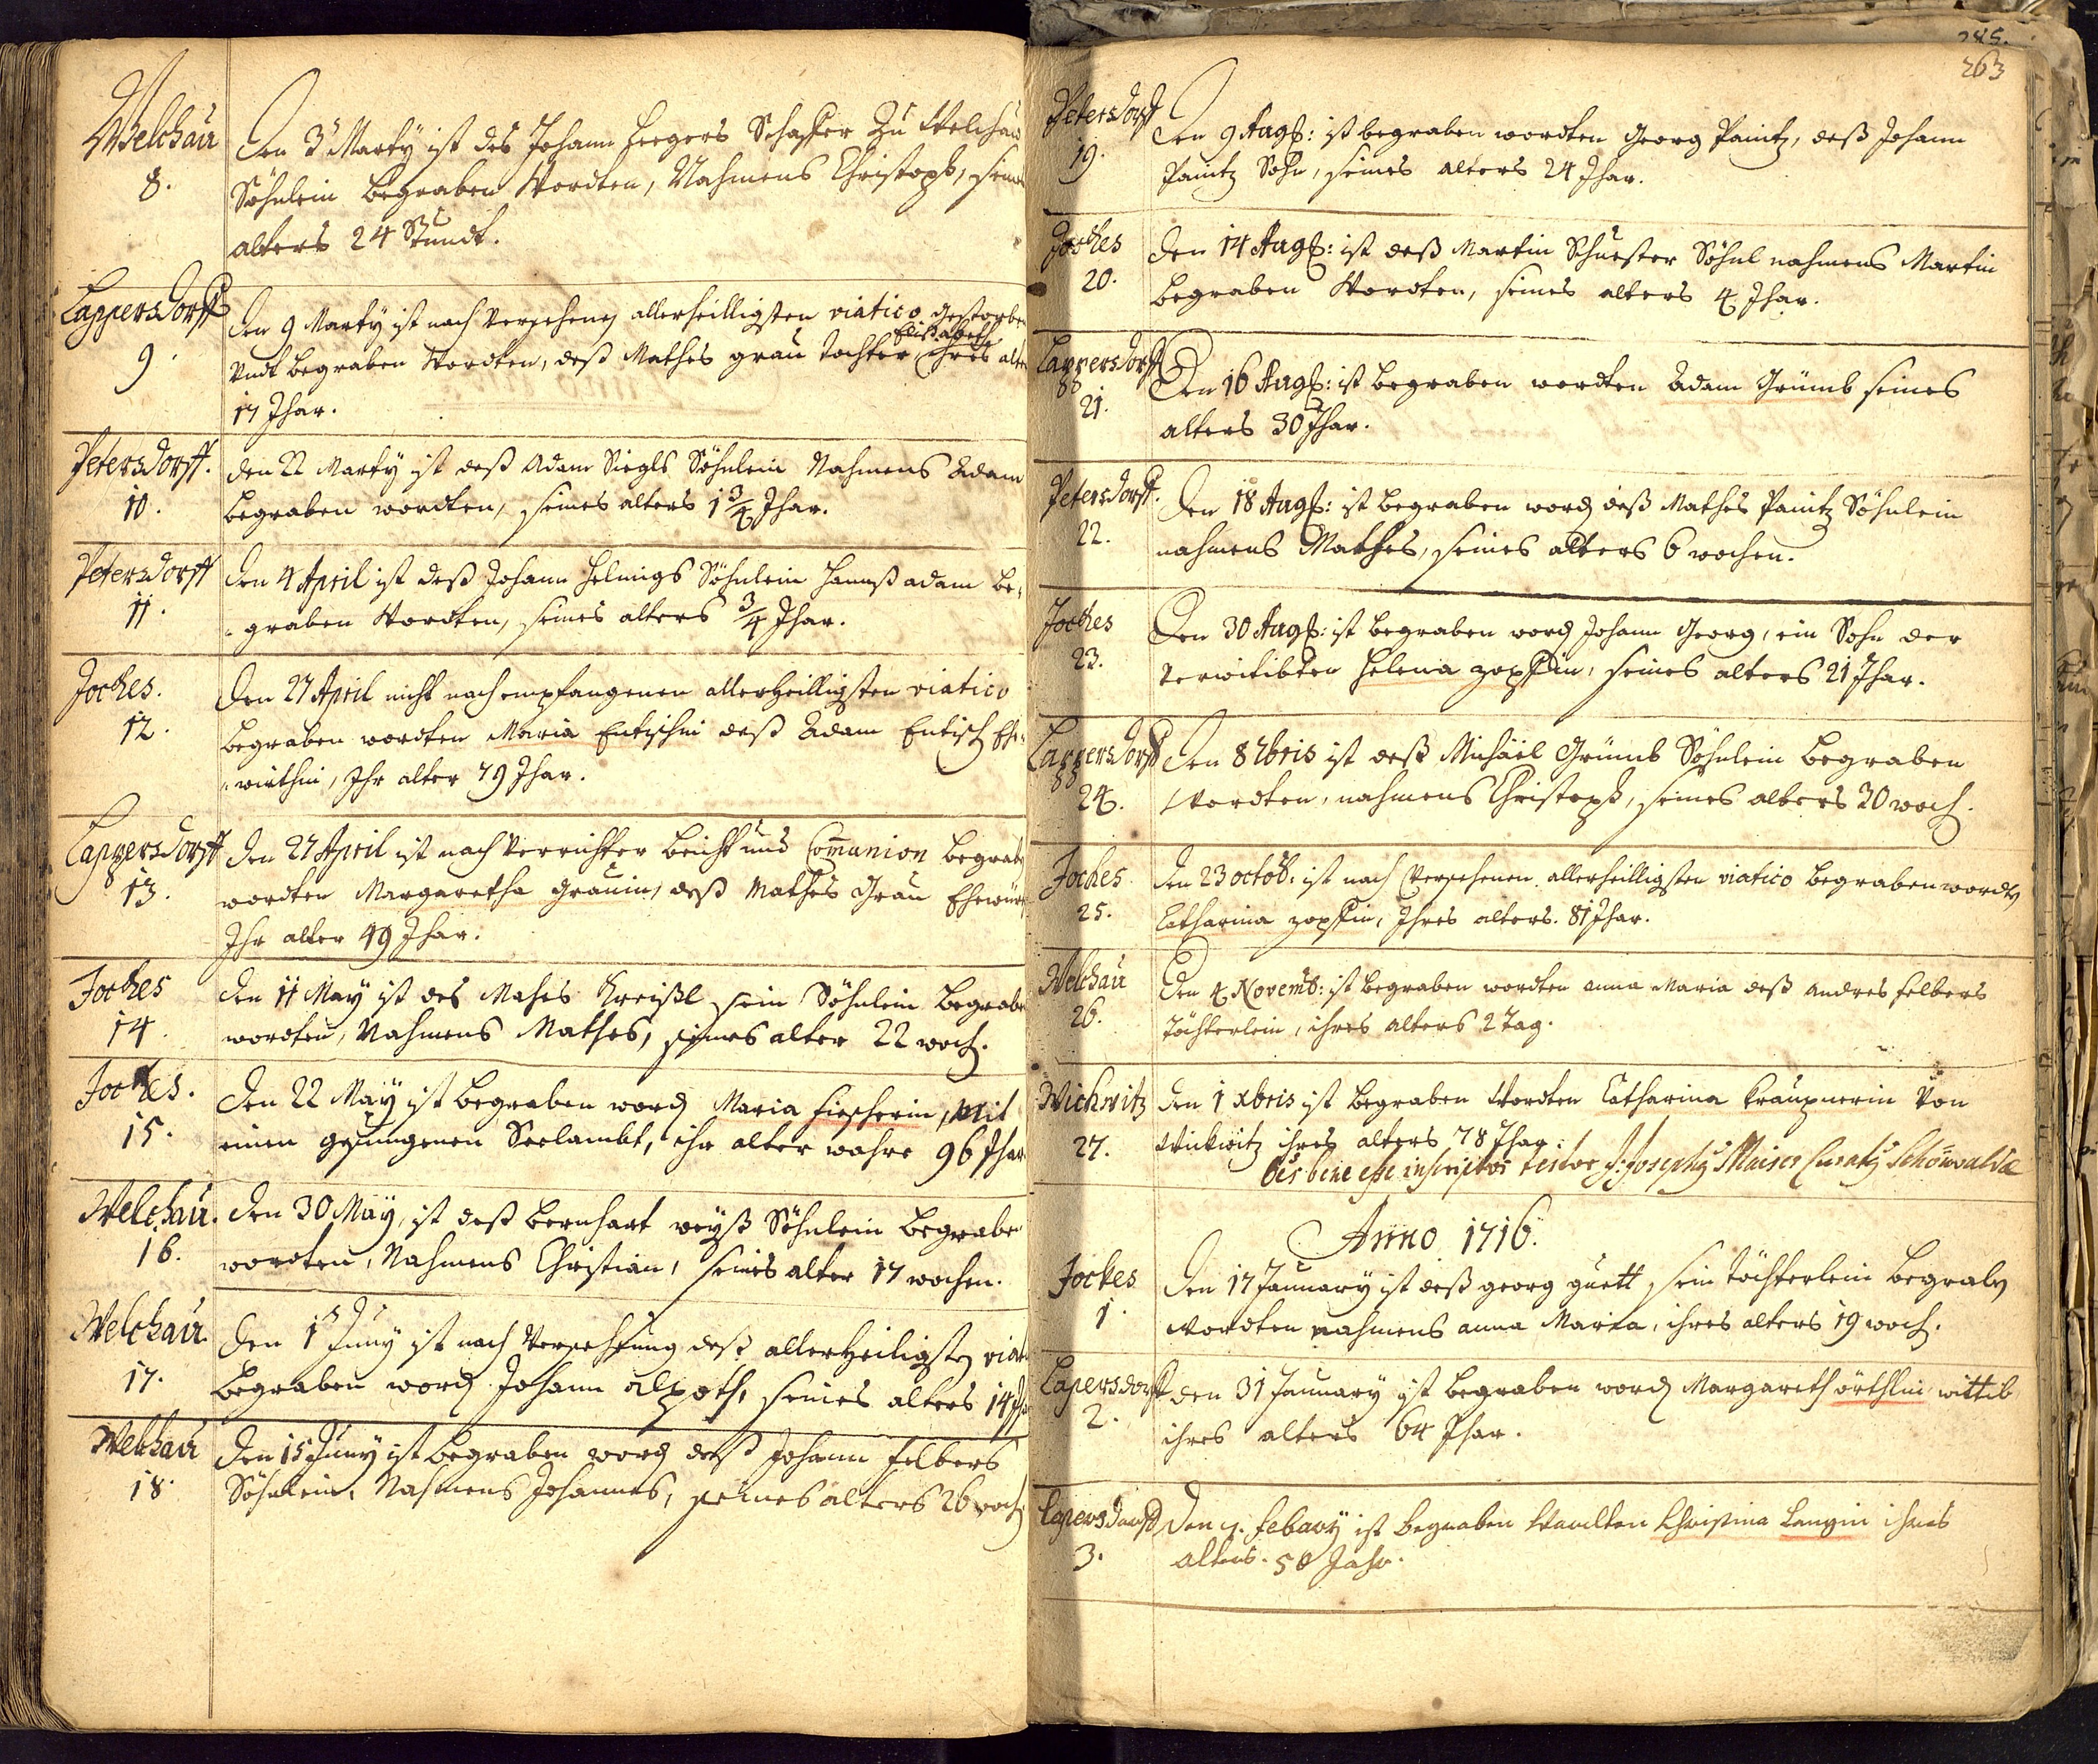 Welchau
8.
Den 3 Marty ist des Johann Seegers Schaffer Zu Welchau
Söhnlein begraben Wordten, Nahmens Christoph, seines
alters 24 Stundt.
Lappersdorff
9.
Den 9 Marty ist nach Versehenen allerheilligsten viatico gestorben
Elisabeth
Undt begraben Wordten, deß Mathes grau tochter ihres alters
17 Jhar.
Petersdorff.
10.
den 22 Marty ist deß Adam Siegls Söhnlein Nahmens Adam
begraben wordten, seines alters 1 3/4 Jhar.
Petersdorff
11.
den 4 April ist deß Johann Helmigs Söhnlein Hannß adam be-
graben Wordten, seines alters 3/4 Jhar.
Joches.
12.
Den 27 April nicht nach empfangenen allerheilligsten viatico
begraben wordten Maria Entischin deß Adam Entisch Ehe-
wirthin, Ihr alter 79 Jhar.
Lappersdorff
13.
Den 27 April ist nach Verrichter beicht und Communion begraben
wordten Margaretha Grauin, deß Mathes Grau
Ihr alter 49 Jhar.
Joches
14.
den 11 May ist des Mahes Kreißl sein Söhnlein begraben
wordten, Nahmens Mathes, seines alter 22 woch.
Joches.
15.
Den 22 May ist begraben word Maria Fiescherin, Mit
einen gesungenen Seelambt, ihr alter wahre 96 Jhar
Welchau.
16.
Den 30 May, ist deß bernhart weyß Söhnlein begraben
wordten, Nahmens Christian, seines alter 17 wochen.
Welchau.
17.
Den 1 Juny ist nach Versehung deß allerheiligsten viatico
begraben word Johann alpoth, seines alters 14 Jhar
Welchau
18.
Den 15 Juny ist begraben word deß Johann Felbers
Söhnlein, Nahmens Johannes, seines alters 26 woch.
285.
263
Petersdorff
19.
Den 9 Aug: ist begraben wordten Georg Painitz, deß Johann
Painitz Sohn, seines alters 24 Jhar.
Joches
20.
den 14 Aug: ist deß Martin Schuester Söhnl nahmens Martin
begraben Wordten, seines alters 4 Jhar.
Lappersdorff
21.
Den 16 Aug: ist begraben wordten Adam Grümb seines
alters 30 Jhar.
Petersdorff.
22.
Den 18 Aug: ist begraben word deß Mathes Painitz Söhnlein
nahmens Mathes, seines alters 6 wochen.
Joches
23.
Den 30 Aug: ist begraben word Johann Georg, ein Sohn der
Verwitibten Helena zopffin, seines alters 21 Jhar.
Lappersdorff
24.
Den 8 7bris ist deß Michäel Grümb Söhnlein begraben
Wordten, nahmens Christoph, seines alters 30 woch.
Joches
25.
den 23 octob: ist nach Versehenen allerheilligsten viatico begraben wordten
Catharina zopffin, Ihres alters. 81 Jhar.
Welchau
26.
Den 4 Novemb: ist begraben wordten anna Maria deß Andres Felbers
Töchterlein, ihres alters 2 Tag.
Wichwitz
27.
den 1 xbris ist begraben Wordten Catharina Kraupnerin Von
Wickwitz ihres alters 78 Jhar:
bene esse inscriptos testor Josephus Maiser Curatus Schönwaldæ
Anno 1716.
Jockes
1.
Den 17 January ist deß georg guett sein töchterlein begraben
wordten nahmens anna Maria, ihres alters 19 woch.
Lapersdorff
2.
den 31 January ist begraben word Margareth örthlin wittib
ihres alters 64 Jhar.
Lapersdorff
3.
Den 9. febary ist begraben Wordten Christina Langin ihres
alters. 50 Jahr.